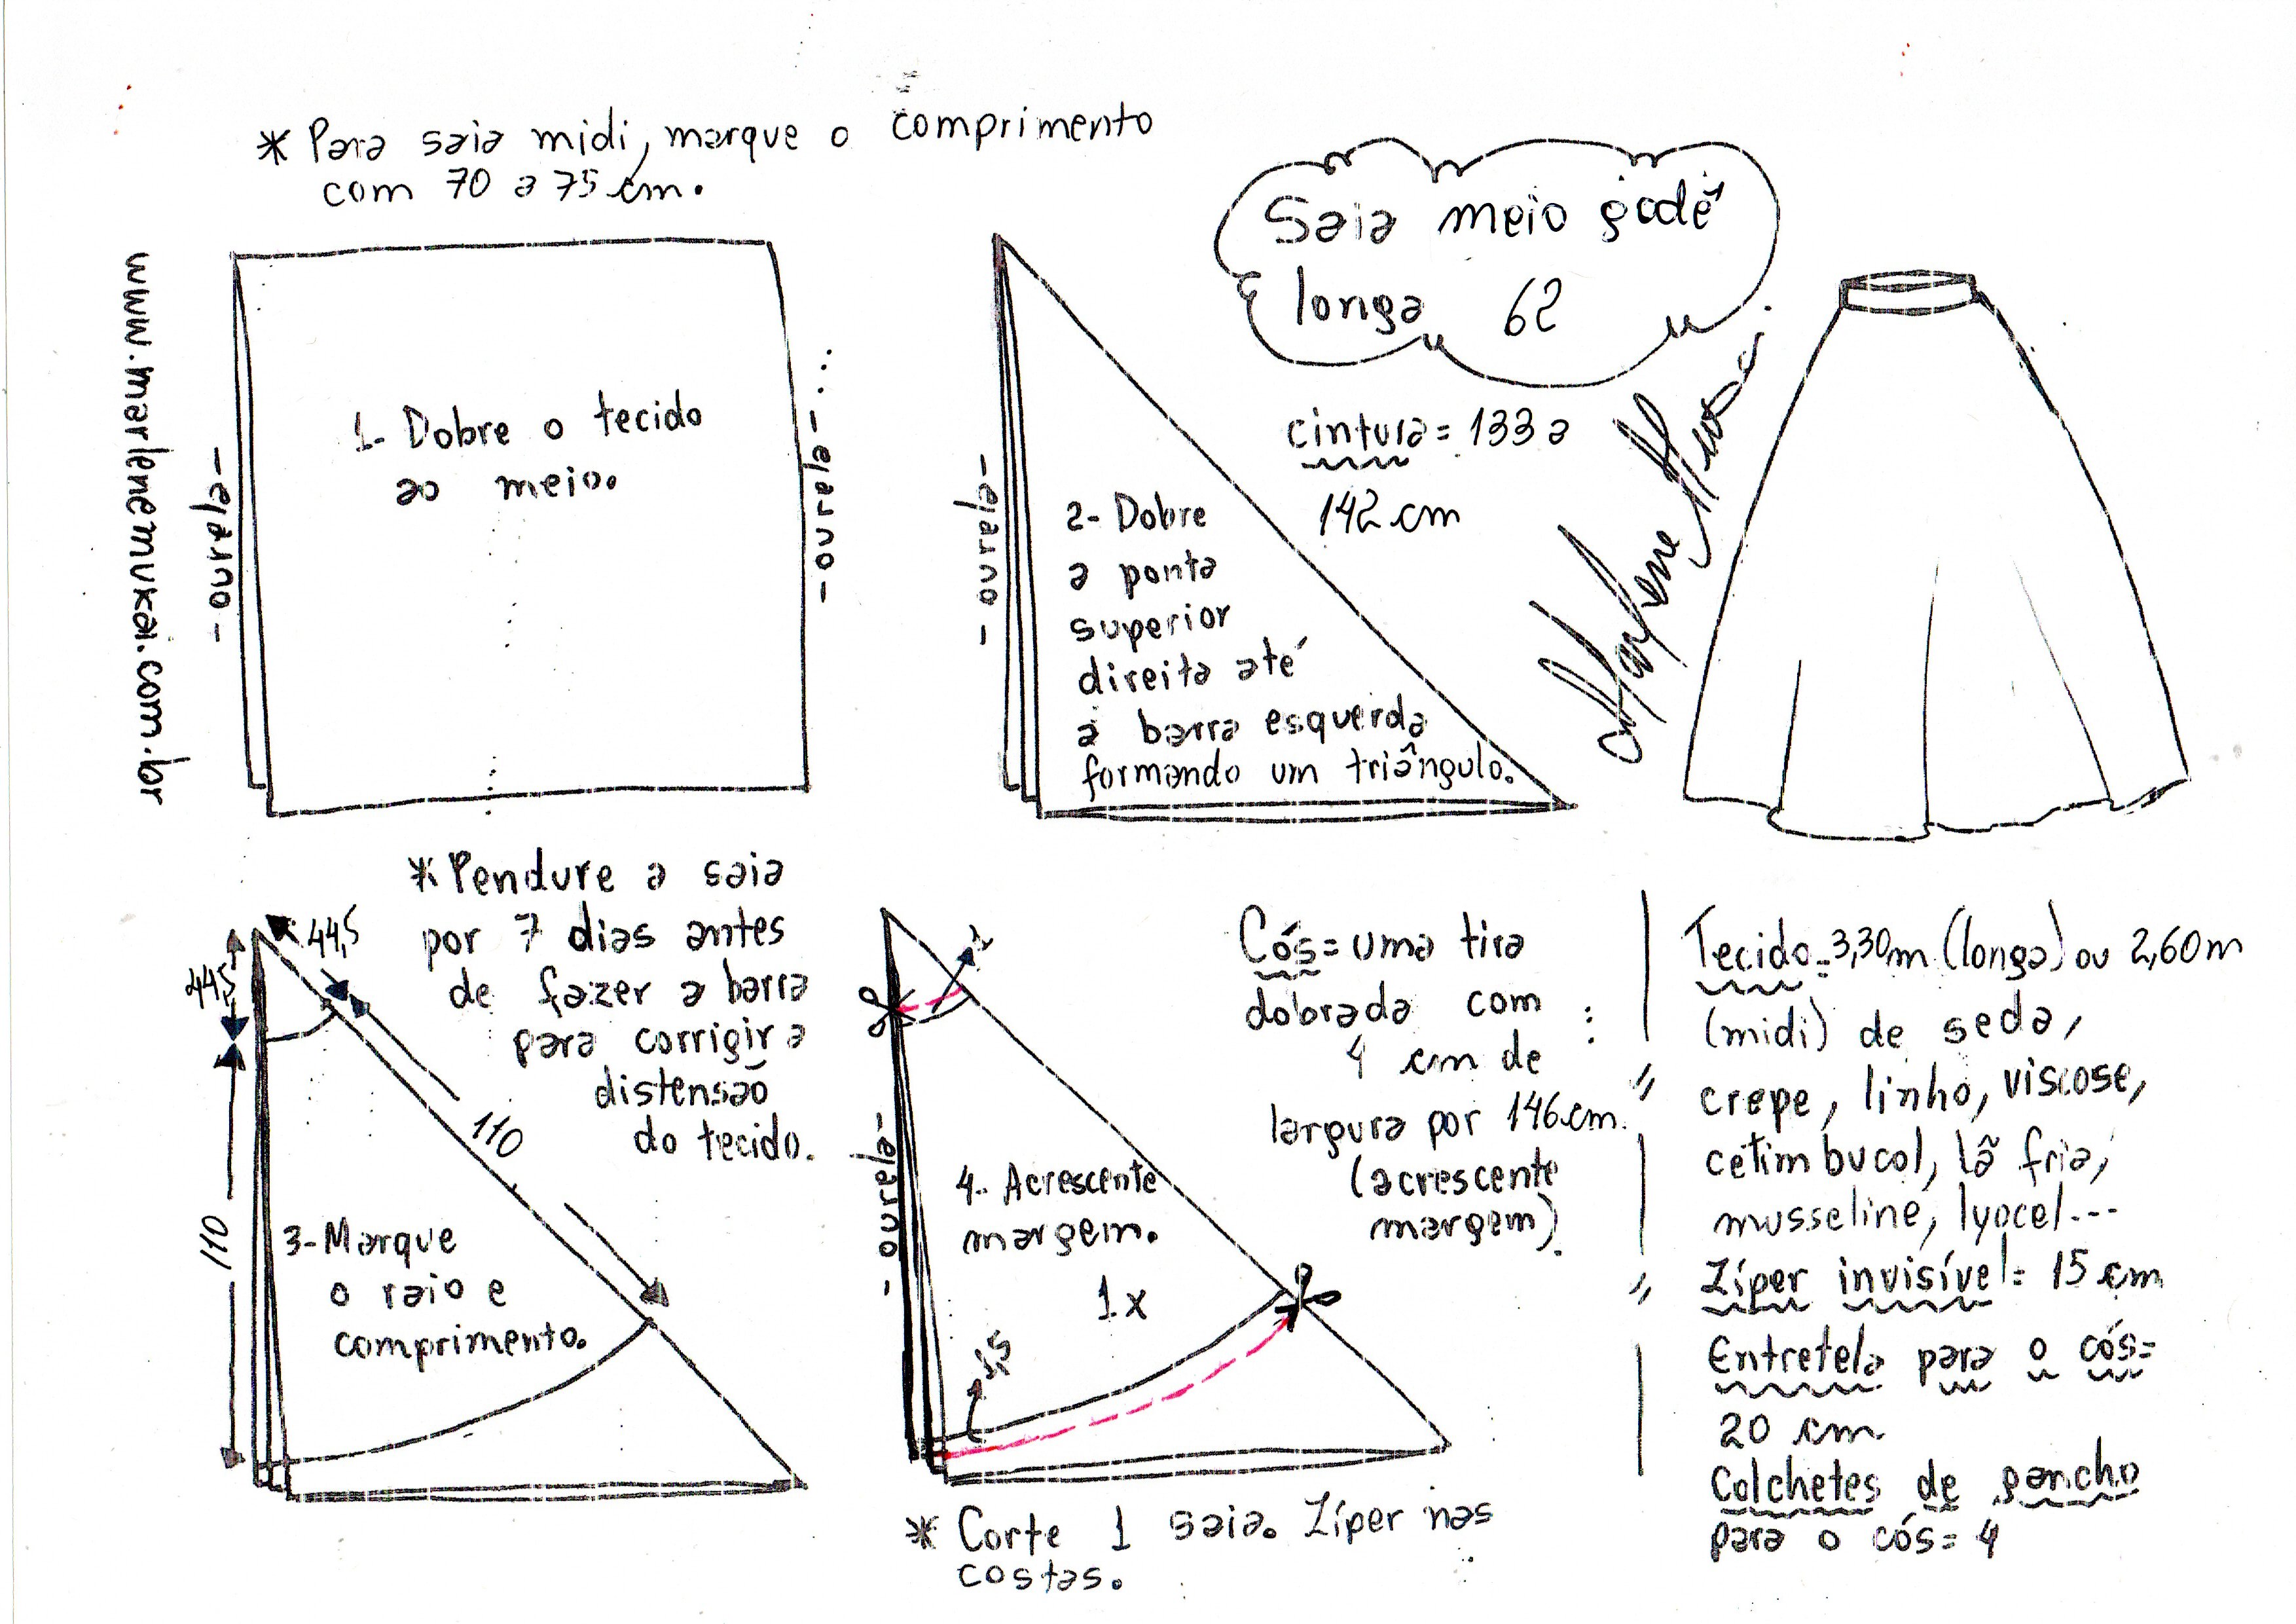 * Para saia midi, marque o comprimento
com 70 a 75 cm.
Saia meio godê
longa 62
www.marlenemukai.com.br
- ourela -
1- Dobre o tecido
ao meio.
- ourela -
- ourela -
2- Dobre
a ponta
superior
direita até
a barra esquerda
formando um triângulo.
cintura = 133 a
142 cm
Marlene Mukai
* Pendure a saia
por 7 dias antes
de fazer a barra
para corrigir a
distensão
do tecido.
44,5
44,5
110
110
3- Marque
o raio e
comprimento.
1
- ourela -
4- Acrescente
margem.
1x
* Corte 1 saia. Zíper nas
costas.
Cós = uma tira
dobrada com
4 cm de
largura por 146 cm.
(acrescente
margem)
Tecido = 3,30m (longa) ou 2,60m
(midi) de seda,
crepe, linho, viscose,
cetim bucol, lã fria,
musseline, lyocel...
Zíper invisível = 15 cm
Entretela para o cós =
20 cm
Colchetes de gancho
para o cós = 4